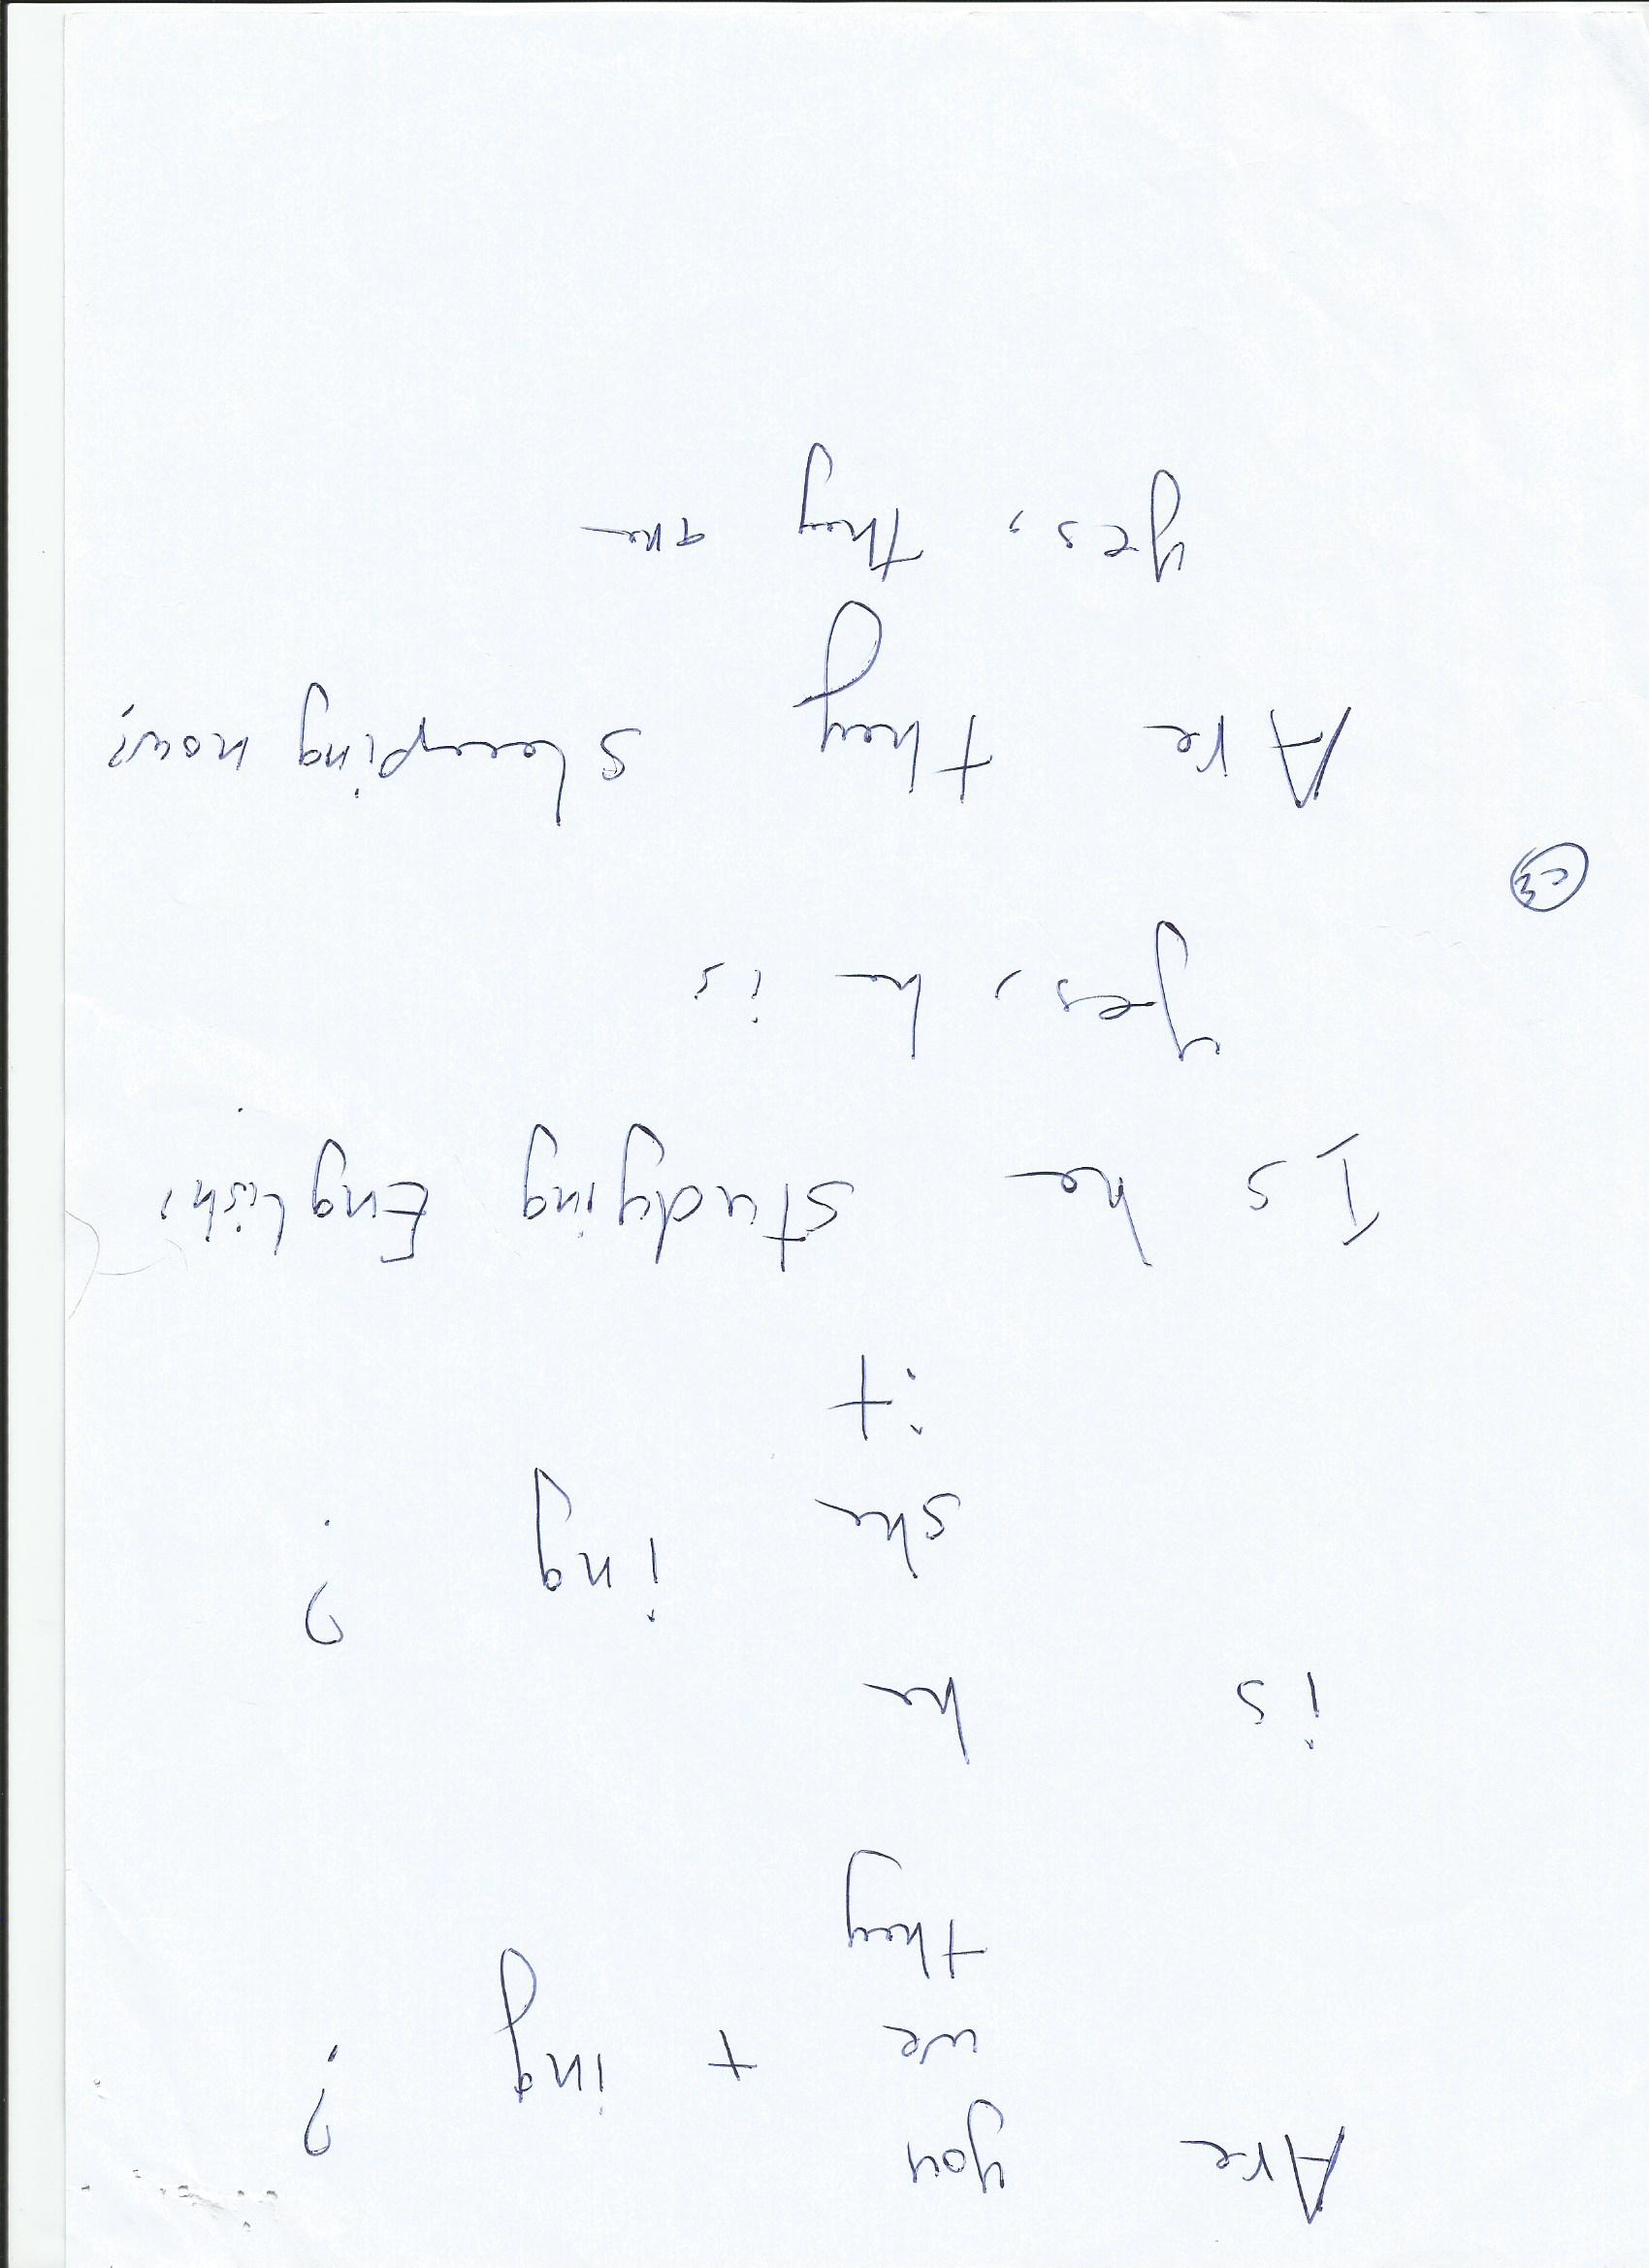 Are you
we + ing ?
they
is he
she ing ?
it
Is he studying English?
yes, he is
Are they sleeping now?
yes, they are